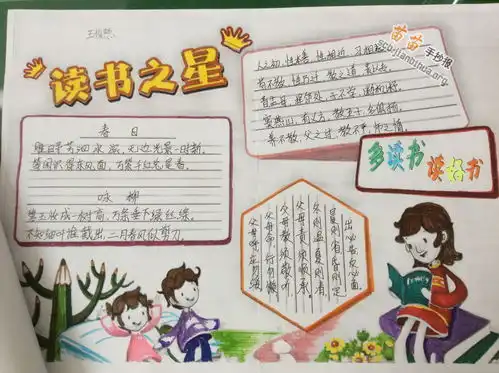 读书之星
苗苗手抄报
Scb.jianbihua.org
春日
胜日寻芳泗水滨,无边光景一时新。
等闲识得东风面,万紫千红总是春。
咏柳
碧玉妆成一树高,万条垂下绿丝绦。
不知细叶谁裁出,二月春风似剪刀。
人之初,性本善,性相近,习相远。
苟不教,性乃迁,教之道,贵以专。
昔孟母,择邻处,子不学,断机杼。
窦燕山,有义方,教五子,名俱扬。
养不教,父之过,教不严,师之惰。
多读书
读好书
父母呼应勿缓
父母命行勿懒
父母教须敬听
父母责须顺承
冬则温夏则凊
晨则省昏则定
出必告反必面